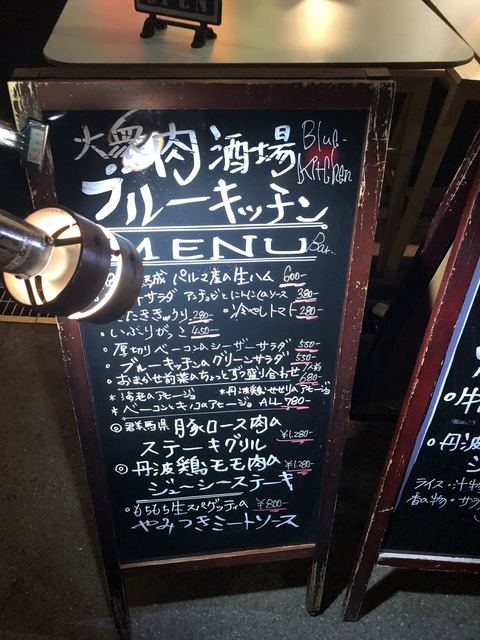 OPEN
大衆肉酒場
Blue
Kitchen
ブルーキッチン
Bar.
MENU
熟成 パルマ産の生ハム 600-
サラダ アンチョビとにんにくのソース 380-
たたききゅうり 280- ・冷やしトマト 280-
・いぶりがっこ 450-
・厚切りベーコンのシーザーサラダ 550-
・ブルーキッチンのグリーンサラダ 550-
・おまかせ前菜のちょっとずつ盛り合わせ 1人前 680-
*海老のアヒージョ *丹波鶏せせりのアヒージョ
*ベーコンときのこのアヒージョ ALL 780-
◎群馬県 豚ロース肉の
ステーキグリル ¥1,280-
◎丹波鶏モモ肉の ¥1,280-
ジューシーステーキ
・もちもち生スパゲッティの ¥800-
やみつきミートソース
・牛
・丹波
ジ
ライス・汁物
香の物・サラ